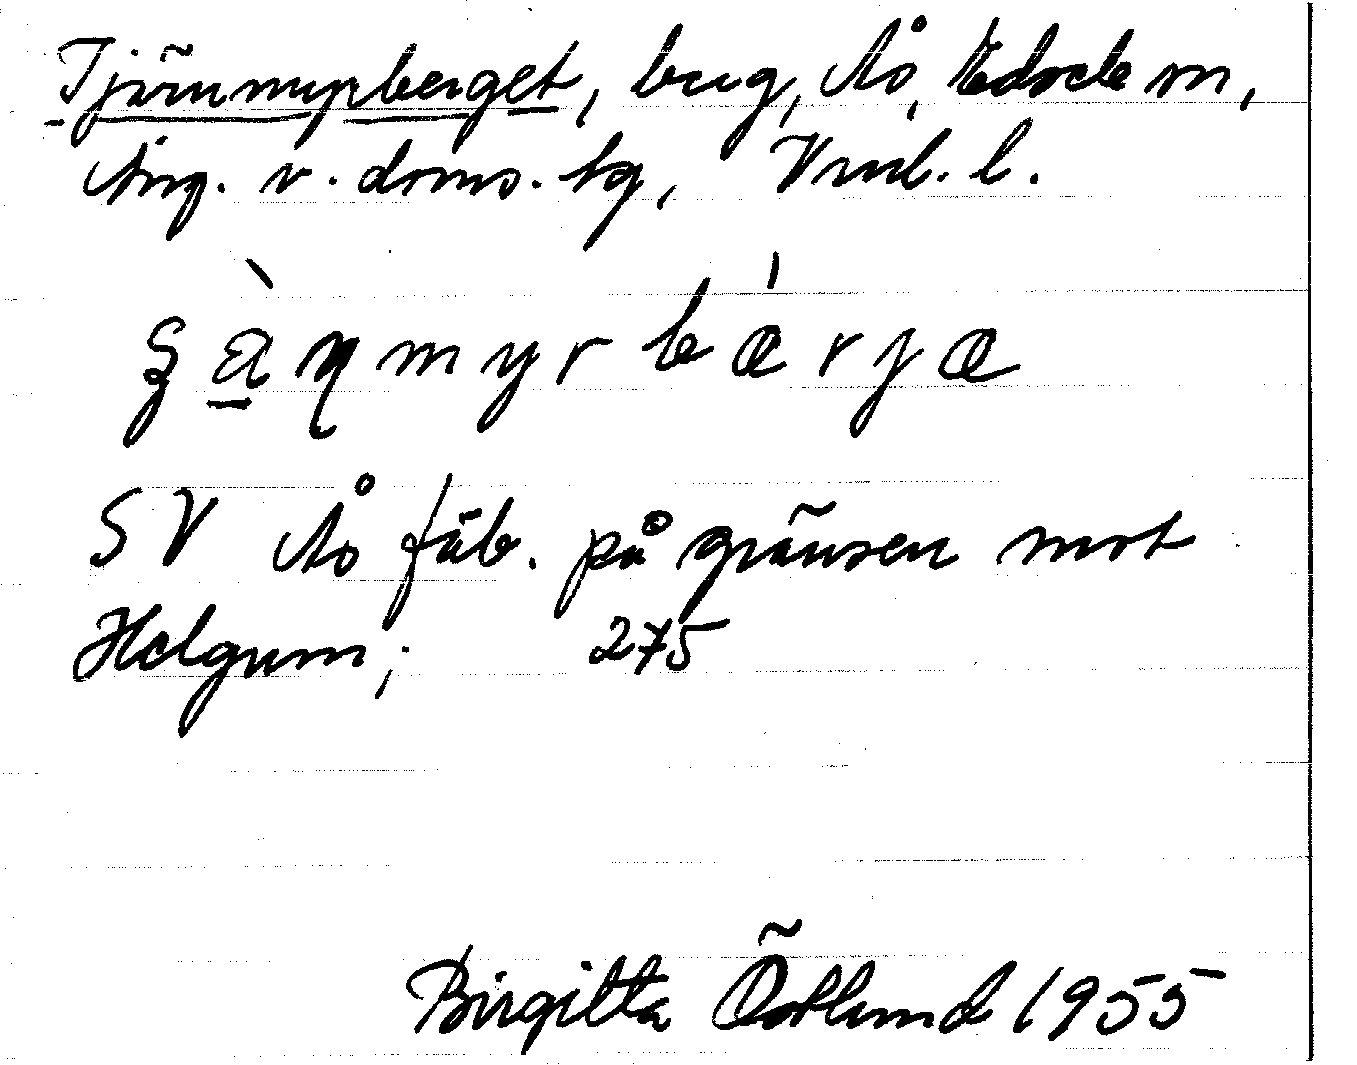 Tjärnmyrberget, berg, Ås, Edsele sn,
Ång. v. doms. tg, Vnl. l.
ȿàɳmyrbǽrjæ
SV Ås fäb. på gränsen mot
Helgum; 275
Birgitta Östlund 1955